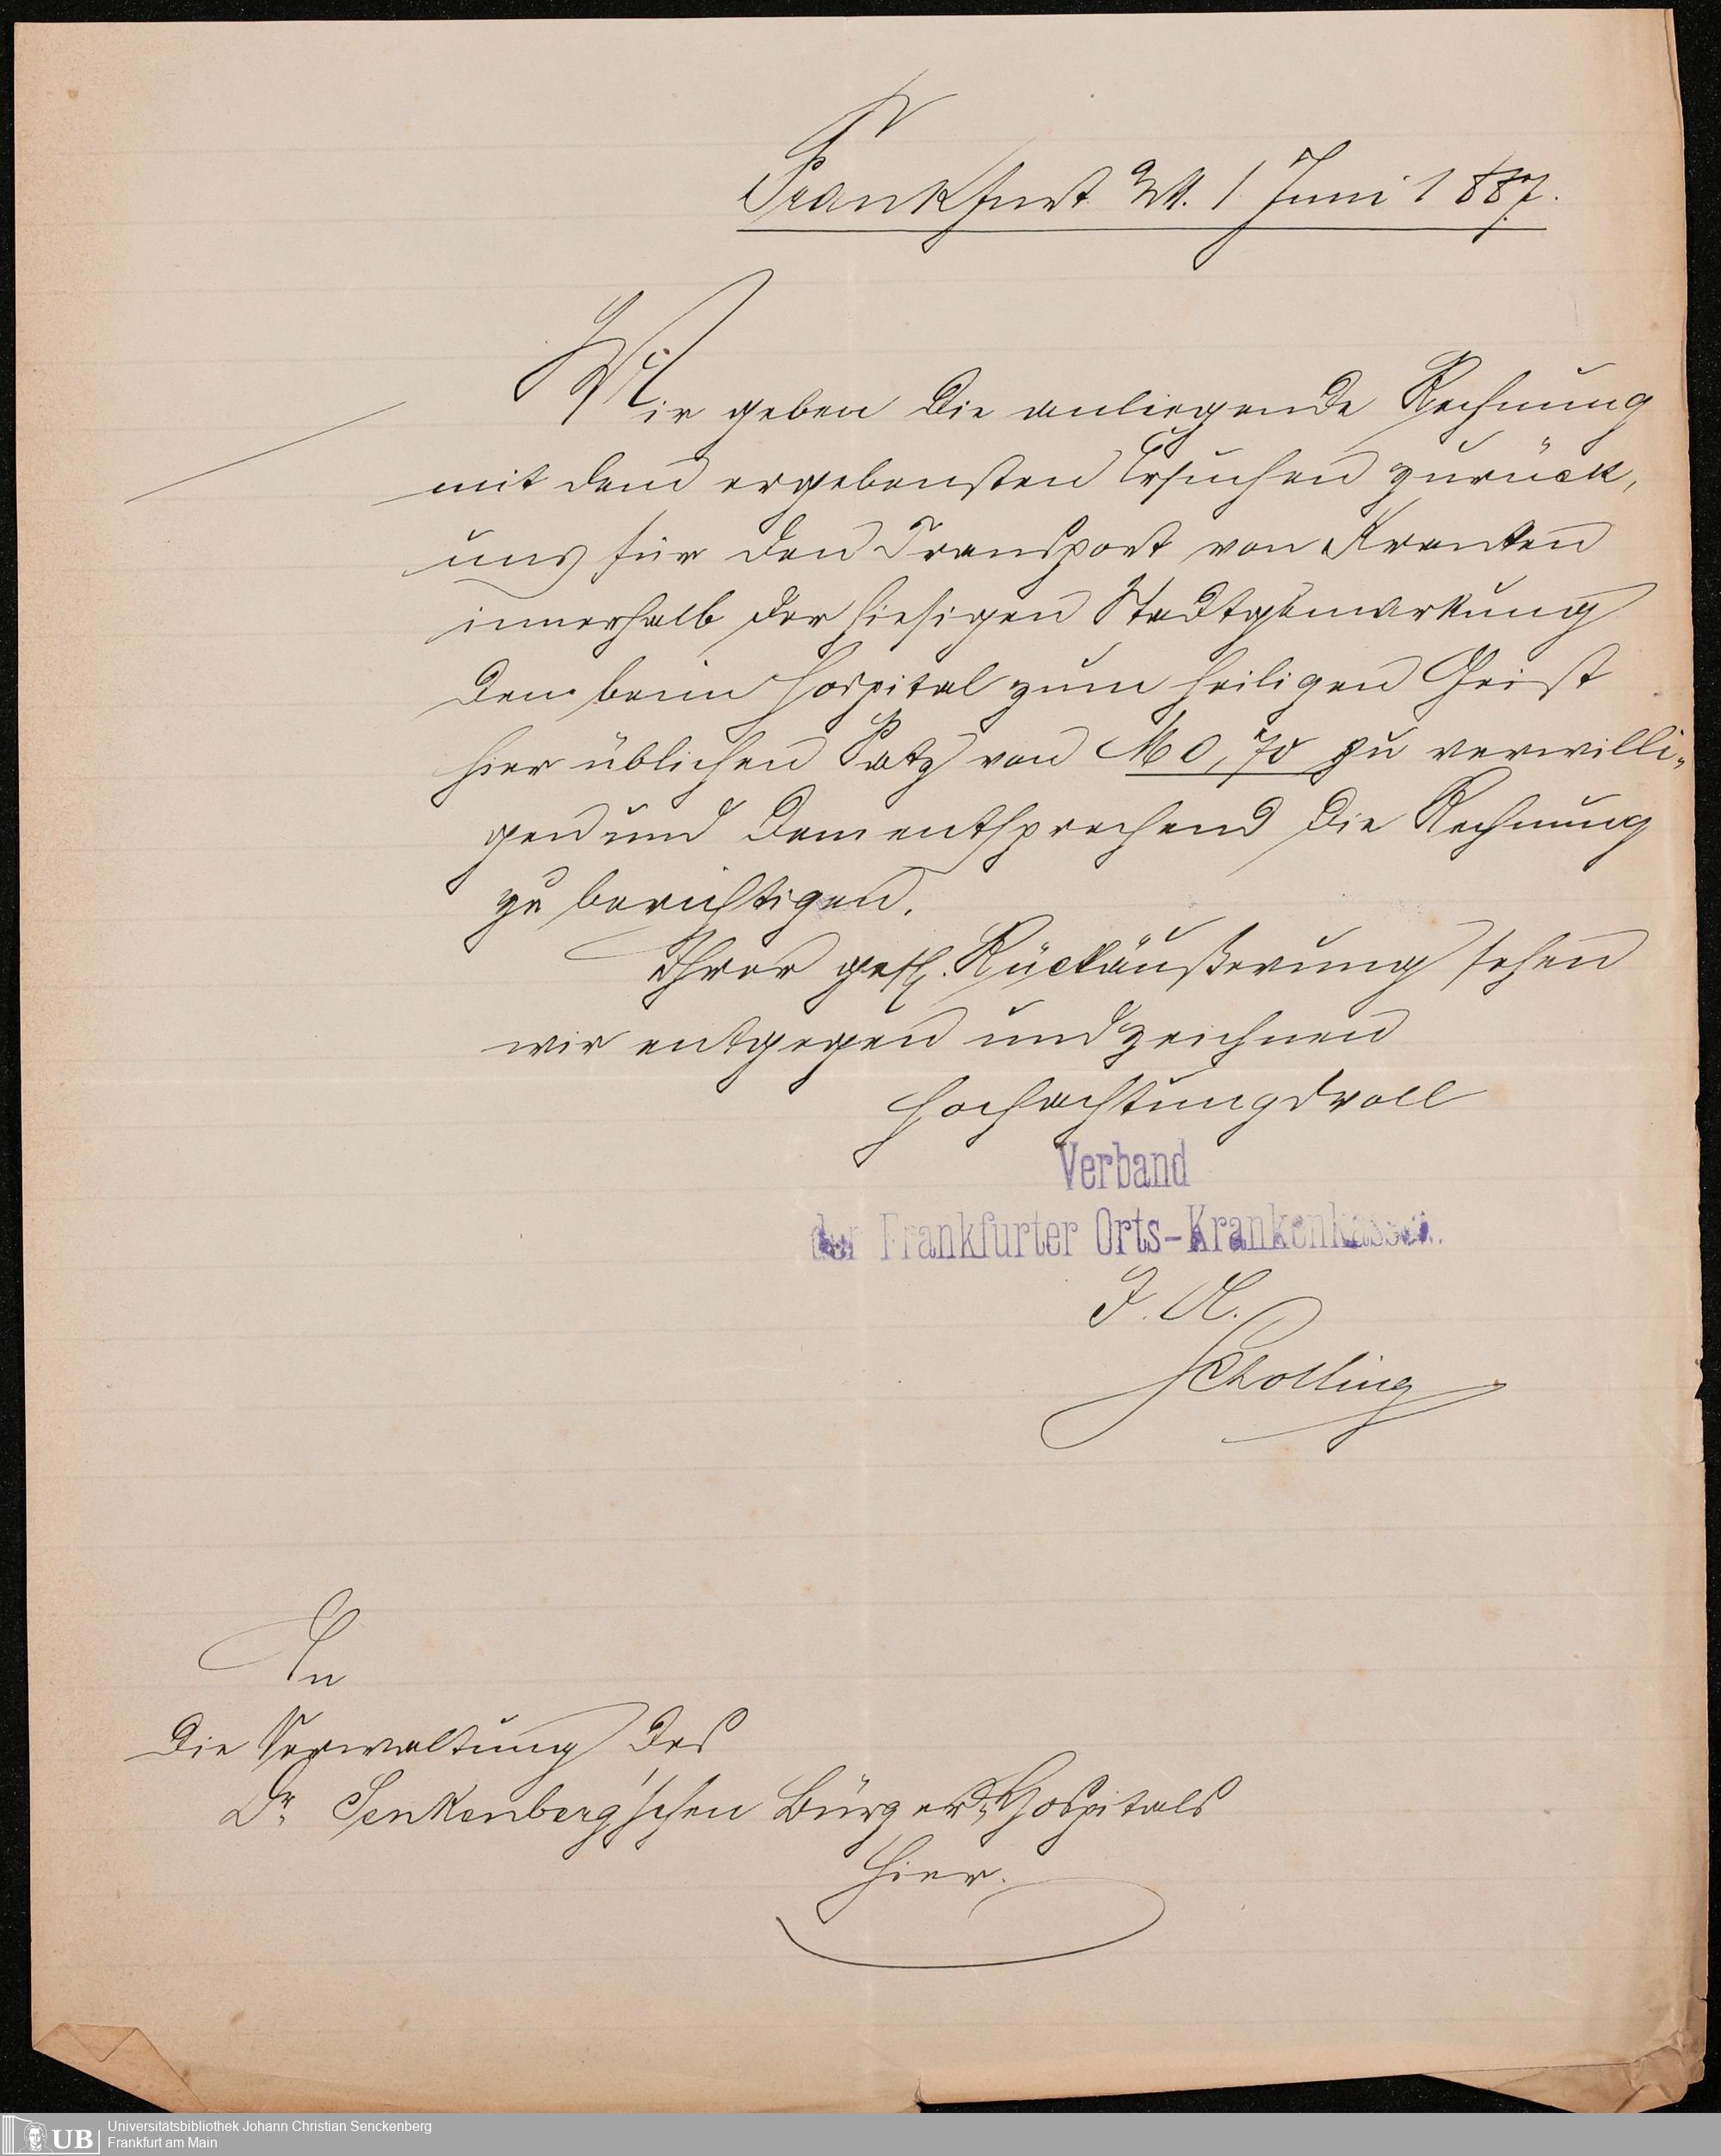 Frankfurt a/M. 1 Juni 1887.
Wir geben die anliegende Rechnung
mit dem ergebensten Ersuchen zurück,
uns für den Transport von Kranken
innerhalb der hiesigen Stadtgemarkung
den beim Hospital zum heiligen Geist
hier üblichen Satz von M 0,70 zu verwilli-
gen und dementsprechend die Rechnung
zu berichtigen.
Ihrer gefl. Rückäußerung sehen
wir entgegen und zeichnen
hochachtungsvoll
Verband
der Frankfurter Orts-Krankenkassen.
I. A.
Scholling
An
die Verwaltung des
Dr. Senkenberg'schen Bürger-Hospitals
Hier.
UB
Universitätsbibliothek Johann Christian Senckenberg
Frankfurt am Main